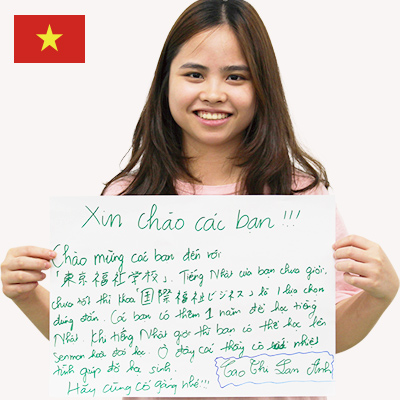 Xin chào các bạn !!!
Chào mừng các bạn đến với
「東京福祉学校」. Tiếng Nhật của bạn chưa giỏi,
chưa tốt thì khoa 「国際福祉ビジネス」 là 1 lựa chọn
đúng đắn. Các bạn có thêm 1 năm để học tiếng
Nhật. Khi tiếng Nhật giỏi thì bạn có thể học lên
Senmon hoặc đại học. Ở đây các thầy cô rất nhiệt
tình giúp đỡ học sinh.
Hãy cùng cố gắng nhé!!!
Cao Thi Lan Anh